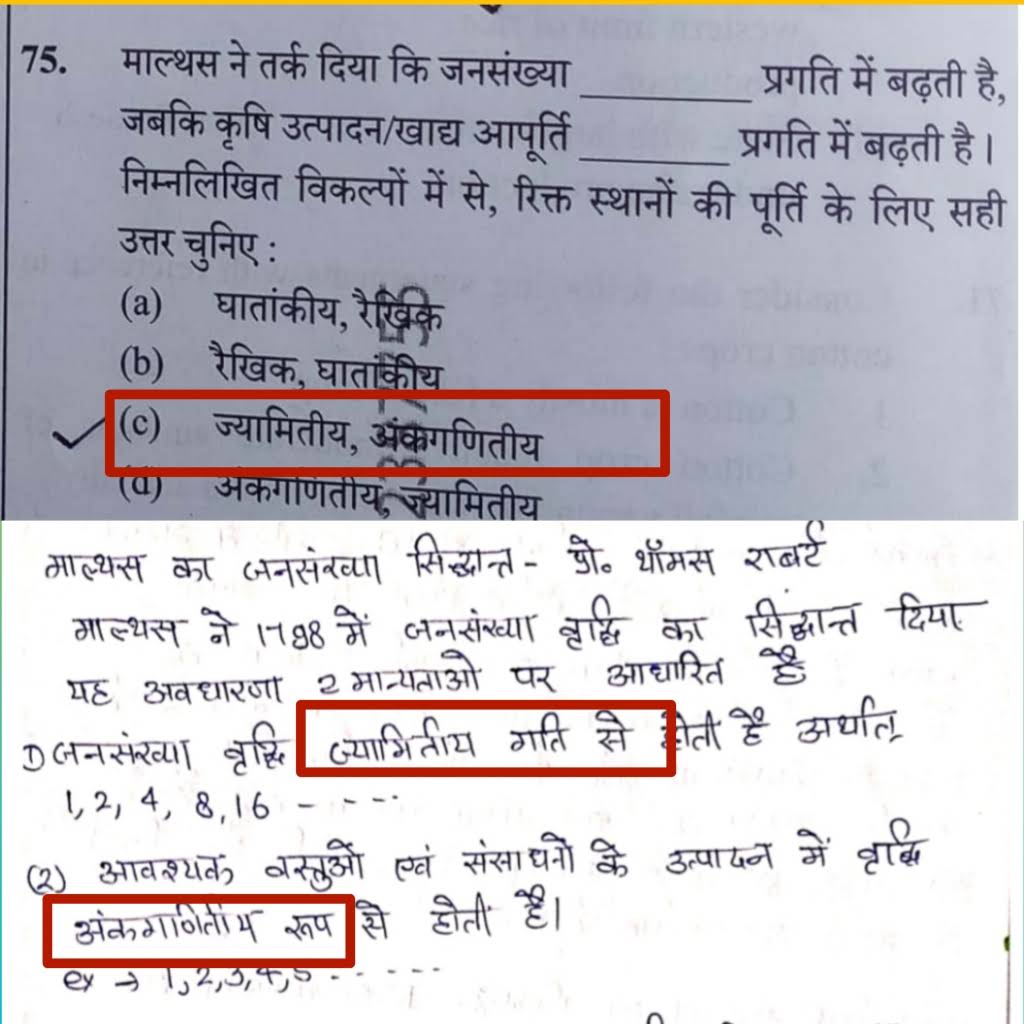 75. माल्थस ने तर्क दिया कि जनसंख्या __________ प्रगति में बढ़ती है,
जबकि कृषि उत्पादन/खाद्य आपूर्ति __________ प्रगति में बढ़ती है।
निम्नलिखित विकल्पों में से, रिक्त स्थानों की पूर्ति के लिए सही
उत्तर चुनिए :
(a) घातांकीय, रैखिक
(b) रैखिक, घातांकीय
(c) ज्यामितीय, अंकगणितीय
(d) अंकगणितीय, ज्यामितीय
माल्थस का जनसंख्या सिद्धान्त - प्रो. थॉमस राबर्ट
माल्थस ने 1798 में जनसंख्या वृद्धि का सिद्धान्त दिया.
यह अवधारणा 2 मान्यताओ पर आधारित है
1) जनसंख्या वृद्धि ज्यामितीय गति से होती है अर्थात्
1, 2, 4, 8, 16 - - - -
(2) आवश्यक वस्तुओं एवं संसाधनो के उत्पादन में वृद्धि
अंकगणितीय रूप से होती है।
ex → 1, 2, 3, 4, 5 - - - - - -